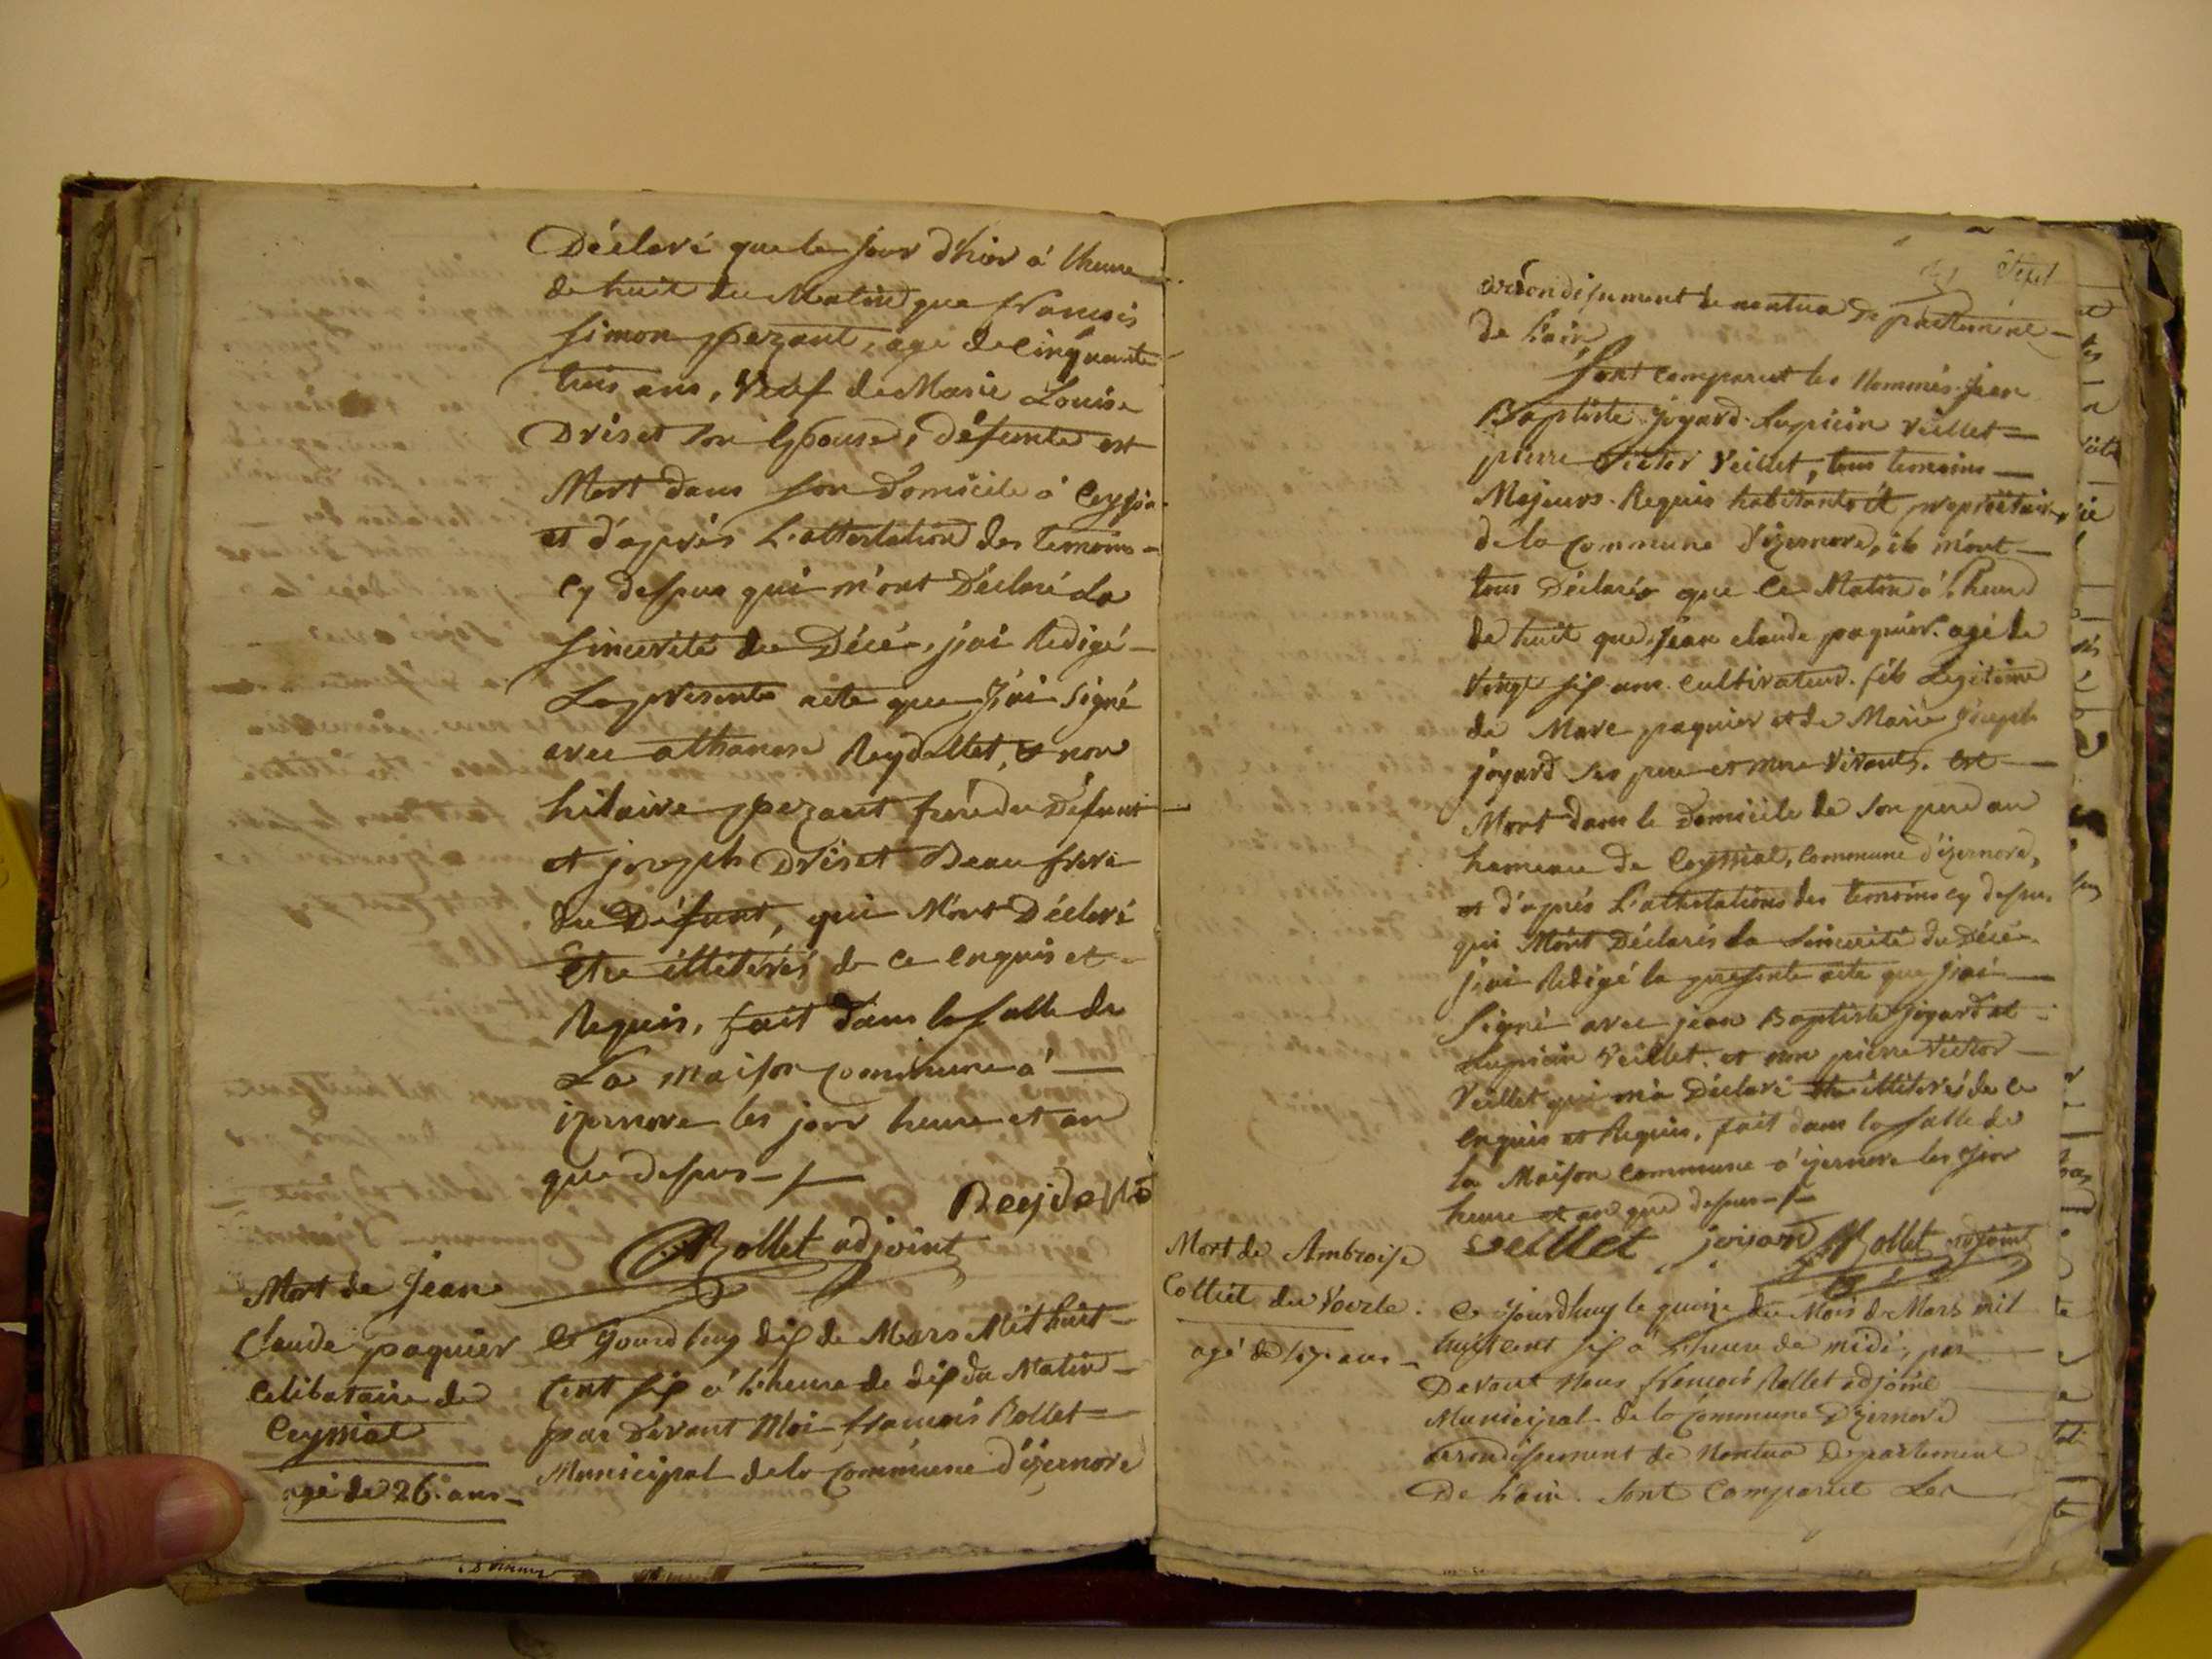 Déclaré que le jour d'hier à l'heure
de huit du Matin que francois
simon pezant, agé de Cinquante
trois ans, Veuf de Marie Louise
Driset son Epouse, défunte est
Mort dans son domicile à Ceyssia
et d'après L'attestation des temoins
cy dessus qui m'ont Déclaré La
sincérité du Décé, j'ai Redigé
La présente acte que j'ai signé
avec athanase Reydellet, & non
hilaire pezant frere du Défunt
et joseph Driset Beau frere
du Défunt, qui M'ont Déclaré
Etre illitérés de ce enquis et
Requis, fait dans la salle de
La maison commune à
izernore les jour heure et an
que dessus
Reydellet
Rollet adjoint
Mort de Jean
Claude paquier
Celibataire de
Ceyssiat
agé de 26 ans
Ce Jourd'huy dix de Mars Mil huit
Cent six à L'heure de dix du Matin
par Devant Moi francois Rollet
Municipal de la Commune d'izernore
arrondissement de nantua Departement
de L'ain
Sont comparut les Nommés Jean
Baptiste Joyard Lupicin Veillet
pierre Victor Veillet, tous temoins
Majeurs Requis habitants et propriétaires
de la Commune d'izernore, ils m'ont
tous Déclarés que Ce Matin à L'heure
de huit que, Jean claude paquier agé de
Vingt six ans Cultivateur fils Legitime
de Marc paquier et de Marie Joseph
joyard ses pere et mere Vivants. est
Mort dans le Domicile de son pere au
hameau de Ceyssiat, Commune d'izernore,
et d'après L'attestations des temoins cy dessus
qui M'ont Déclarés La Sincerité du Décé
j'ai Redigé la presente acte que j'ai
signé avec jean Baptiste Joyard et
Lupicin Veillet et non pierre Victor
Veillet qui m'a Déclaré Etre illiterés de ce
enquis et Requis, fait dans la salle de
la Maison Commune à izernore les Jour
heure et an que dessus
veillet joijard Rollet adjoint
Mort de Ambroise
Colliet du Voerle
agé de 67 ans
Ce Jourdhuy le quinze du Mois de Mars mil
huit cent six à L'heure de midi, par
Devant Nous francois Rollet adjoint
Municipal de la Commune D'izernore
arrondissement de Nantua département
De L'ain. Sont Comparut Les